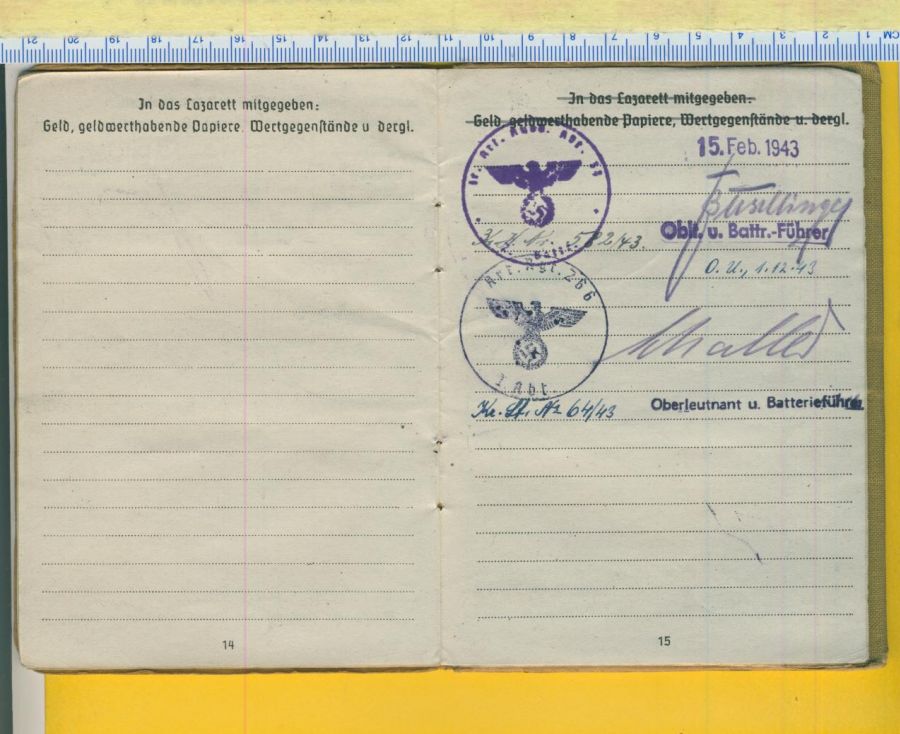 CM 1 2 3 4 5 6 7 8 9 10 11 12 13 14 15 16 17 18 19 20 21
In das Lazarett mitgegeben:
Geld, geldwerthabende Papiere, Wertgegenstände u dergl.
14
In das Lazarett mitgegeben:
Geld, geldwerthabende Papiere, Wertgegenstände u. dergl.
15. Feb. 1943
Art. Abt.
Oblt. u. Battr.-Führer
582/43.
O. U., 1.12.43
Art. Rgt. 266
I. Abt.
Oberleutnant u. Batterieführer
Nº 64/43
15